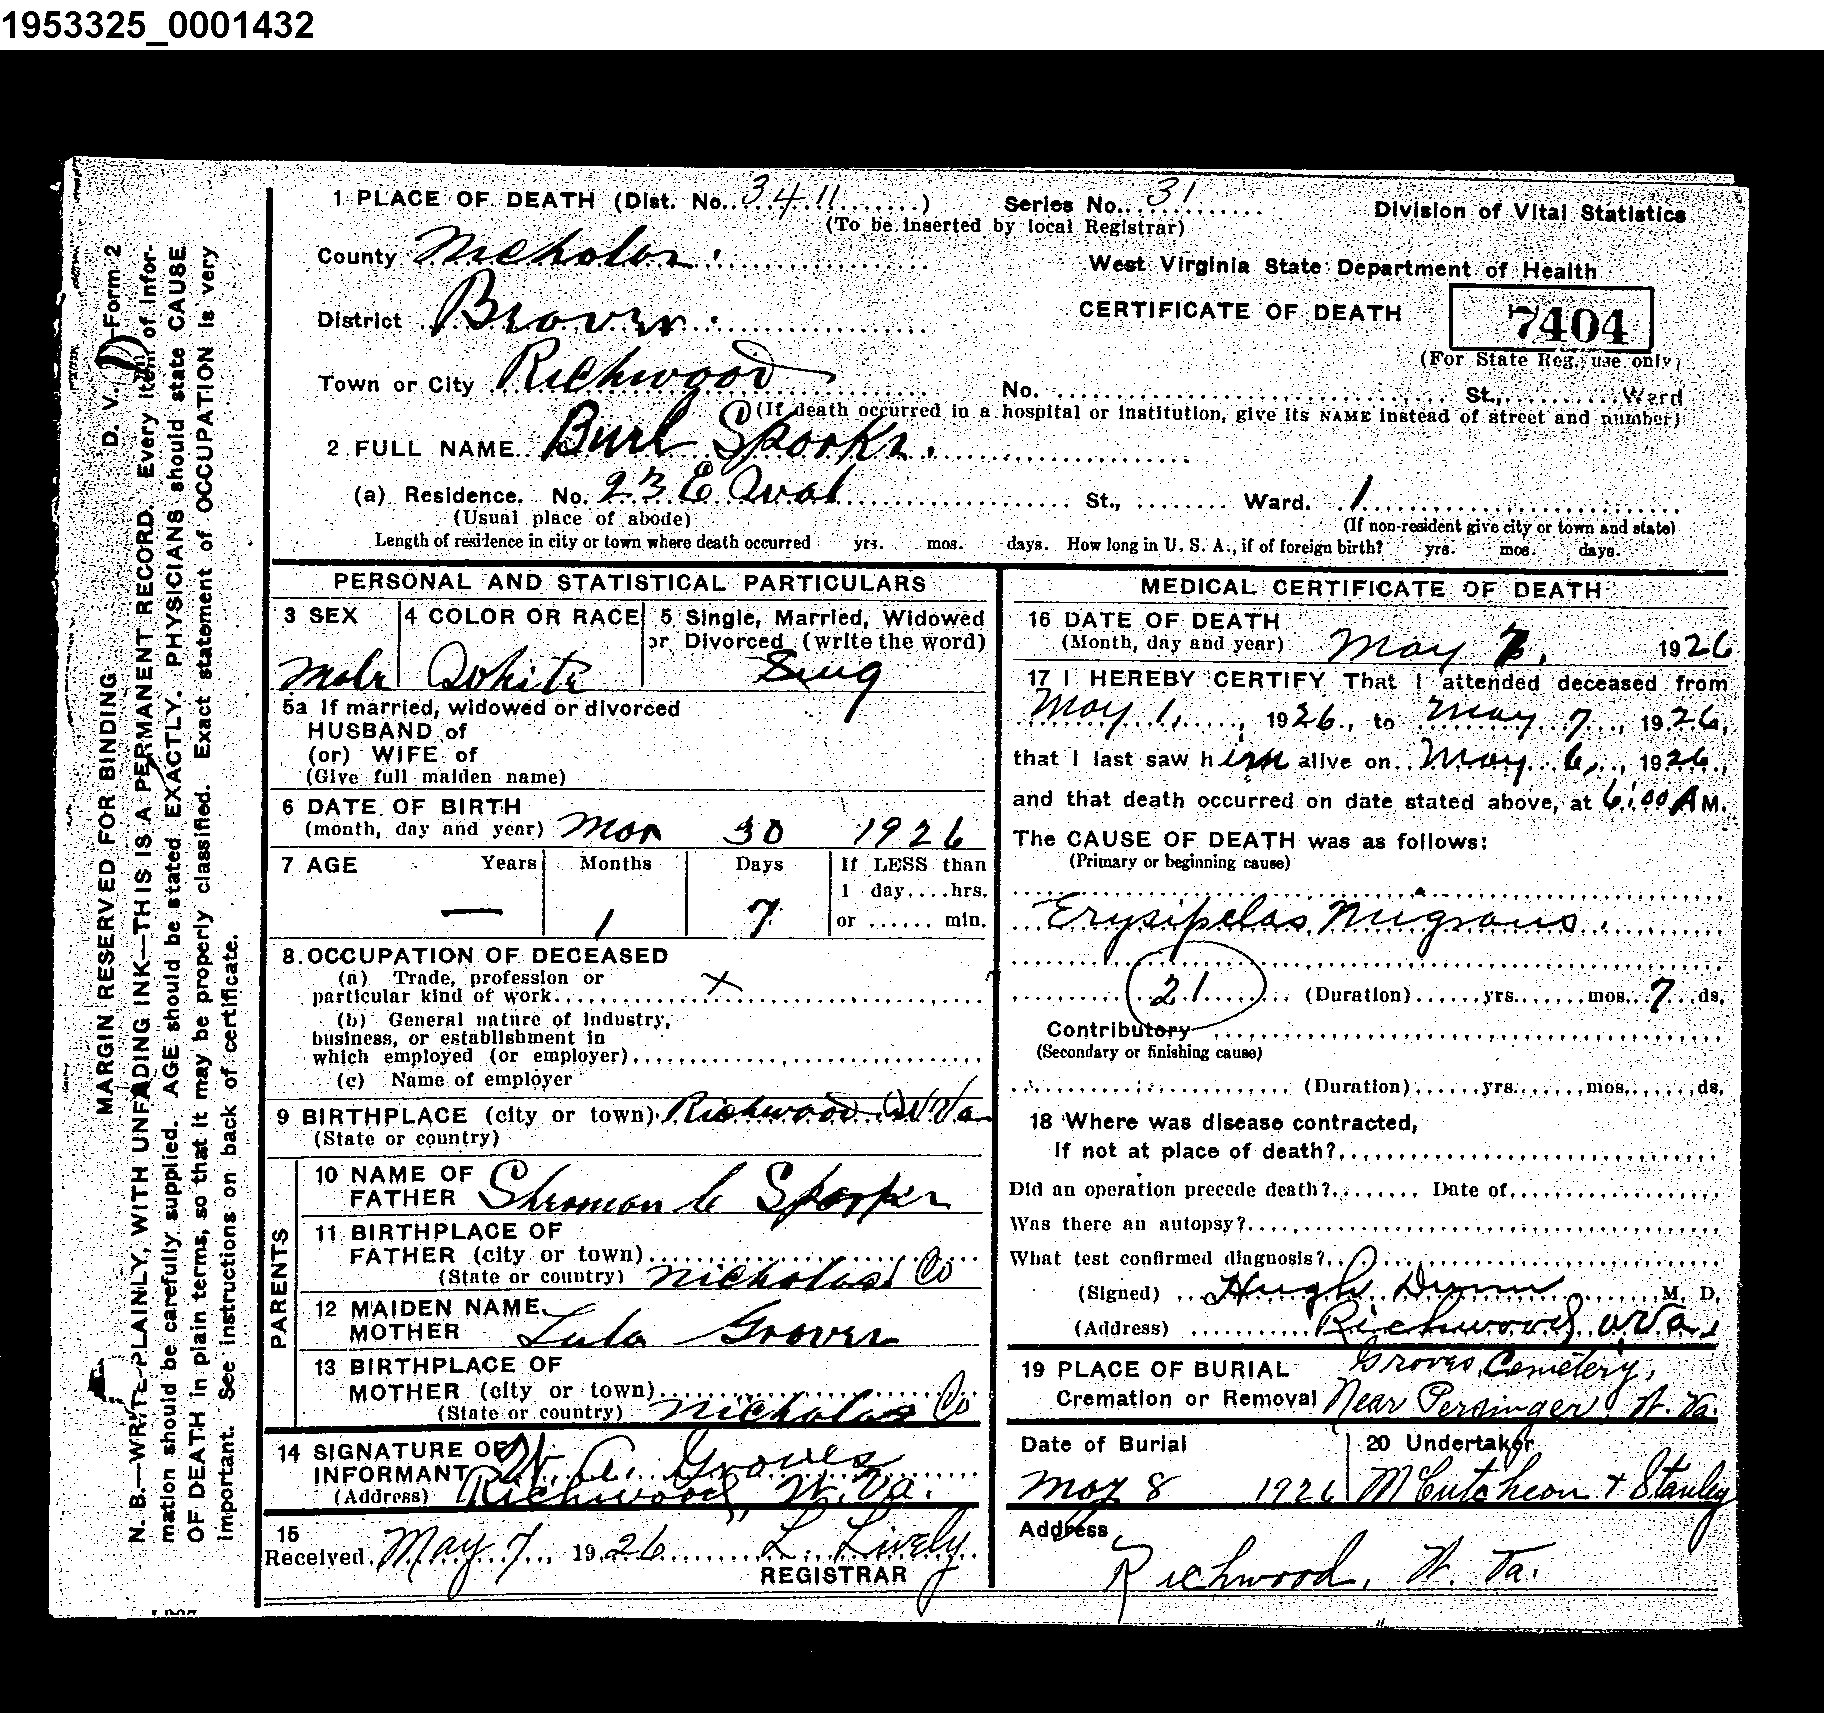 1953325_0001432
1 PLACE OF DEATH (Dist. No. 3411 ) Series No. 31 Division of Vital Statistics
(To be inserted by local Registrar)
County Nicholas West Virginia State Department of Health
District Beaver CERTIFICATE OF DEATH 7404
(For State Reg. use only)
Town or City Richwood No. St., Ward
(If death occurred in a hospital or institution, give its NAME instead of street and number)
2 FULL NAME Burl Sparks.
(a) Residence. No. 23 E St., Ward. 1
(Usual place of abode) (If non-resident give city or town and state)
Length of residence in city or town where death occurred yrs. mos. days. How long in U. S. A., if of foreign birth? yrs. mos. days.
PERSONAL AND STATISTICAL PARTICULARS
3 SEX 4 COLOR OR RACE 5 Single, Married, Widowed
or Divorced (write the word)
Male White Sing
5a If married, widowed or divorced
HUSBAND of
(or) WIFE of
(Give full maiden name)
6 DATE OF BIRTH
(month, day and year) Mar 30 1926
7 AGE Years Months Days If LESS than
1 day....hrs.
— 1 7 or ...... min.
8. OCCUPATION OF DECEASED
(a) Trade, profession or
particular kind of work x
(b) General nature of industry,
business, or establishment in
which employed (or employer)
(c) Name of employer
9 BIRTHPLACE (city or town) Richwood W Va
(State or country)
PARENTS
10 NAME OF
FATHER C
11 BIRTHPLACE OF
FATHER (city or town)
(State or country) Nicholas Co
12 MAIDEN NAME
MOTHER Lula Groves
13 BIRTHPLACE OF
MOTHER (city or town)
(State or country) Nicholas Co
14 SIGNATURE OF
INFORMANT W. A. Groves
(Address) Richwood, W. Va.
15
Received May 7 1926 L. Lively
REGISTRAR
MEDICAL CERTIFICATE OF DEATH
16 DATE OF DEATH
(Month, day and year) May 7, 1926
17 I HEREBY CERTIFY That I attended deceased from
May 1, 1926, to May 7, 1926,
that I last saw him alive on May 6, 1926,
and that death occurred on date stated above, at 6:00 A M.
The CAUSE OF DEATH was as follows:
(Primary or beginning cause)
Erysipelas Migrans
21 (Duration) yrs. mos. 7 ds.
Contributory
(Secondary or finishing cause)
(Duration) yrs. mos. ds.
18 Where was disease contracted,
If not at place of death?
Did an operation precede death? Date of
Was there an autopsy?
What test confirmed diagnosis?
(Signed) Hugh Dunn M. D.
(Address) Richwood, W Va.
19 PLACE OF BURIAL Groves Cemetery,
Cremation or Removal Near Persinger, W. Va.
Date of Burial 20 Undertaker
May 8 1926 McCutcheon & Stanley
Address
Richwood, W. Va.
D. V. —Form 2
MARGIN RESERVED FOR BINDING
N. B.—WRITE PLAINLY, WITH UNFADING INK—THIS IS A PERMANENT RECORD. Every item of infor-
mation should be carefully supplied. AGE should be stated EXACTLY. PHYSICIANS should state CAUSE
OF DEATH in plain terms, so that it may be properly classified. Exact statement of OCCUPATION is very
important. See instructions on back of certificate.